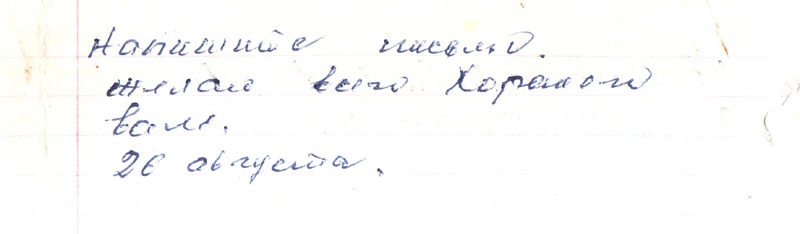 Напишите письмо.
желаю всего Хорошого
вам.
26 августа.